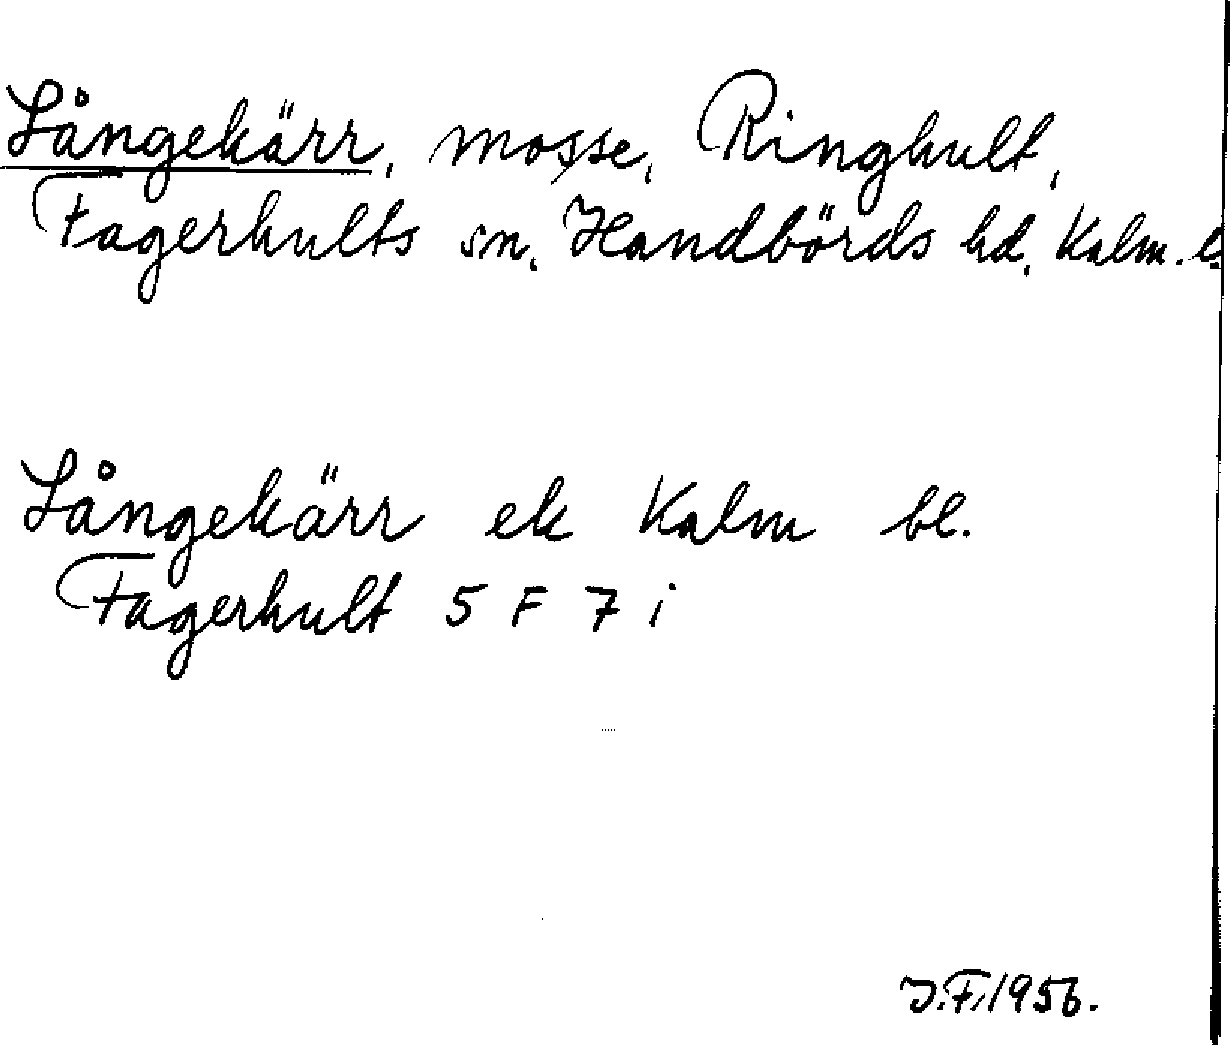 Långekärr, mosse, Ringhult,
Fagerhults sn, Handbörds hd, Kalm. l.
Långekärr ek Kalm bl.
Fagerhult 5 F 7 i
J.F. 1956.